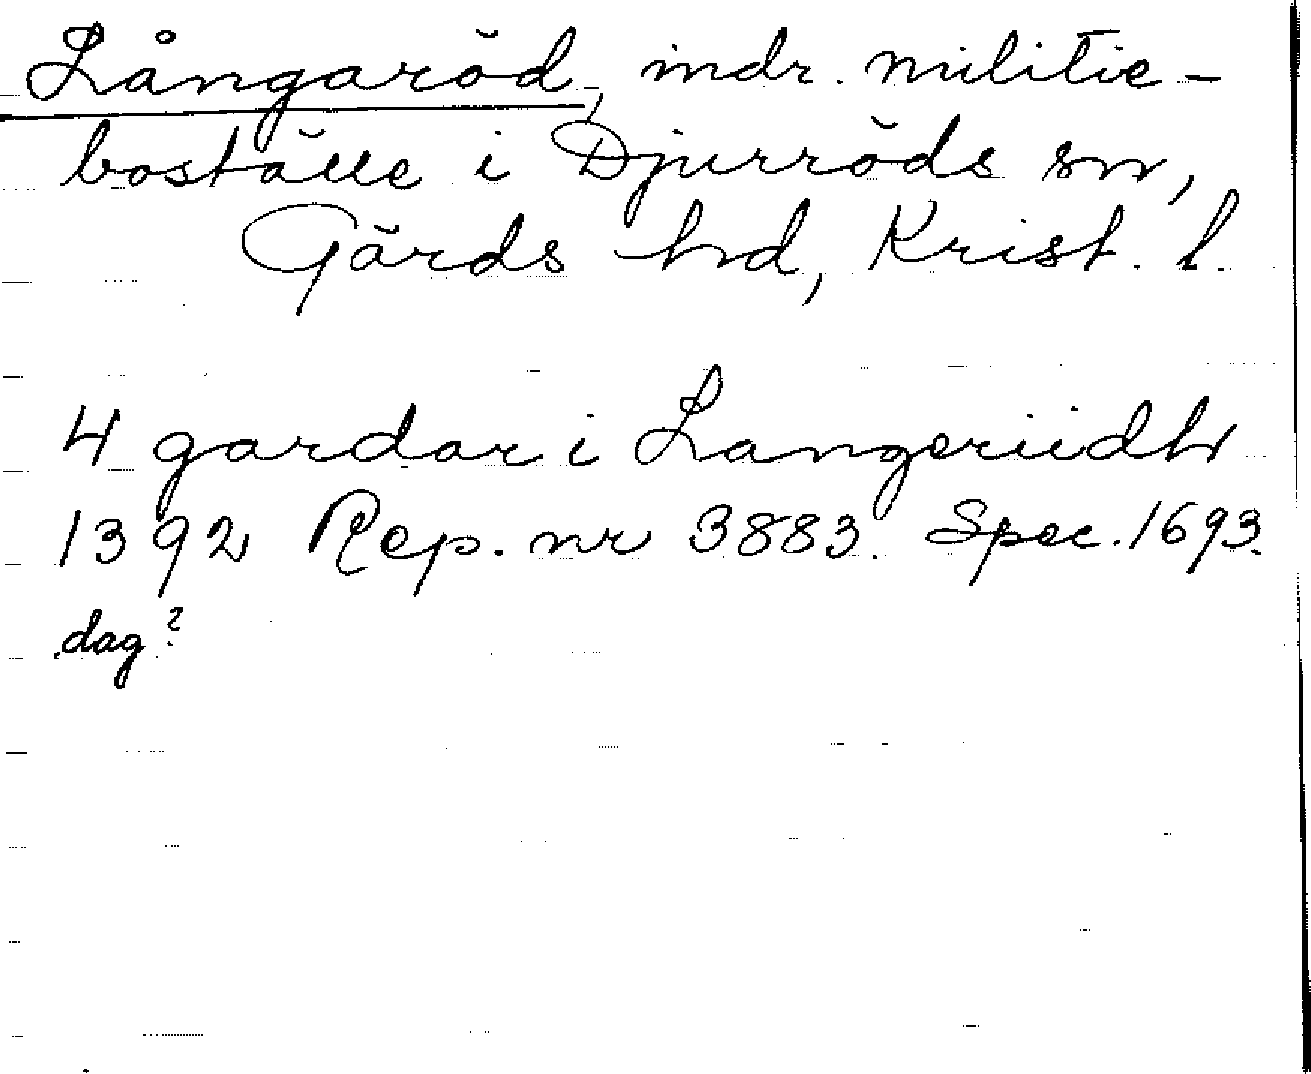 Långaröd, indr. militie-
boställe i Djurröds sn,
Gärds hd, Krist. l.
4 gardar i Langeriidh
1392 Rep. nr 3883. Spec. 1693.
dag?